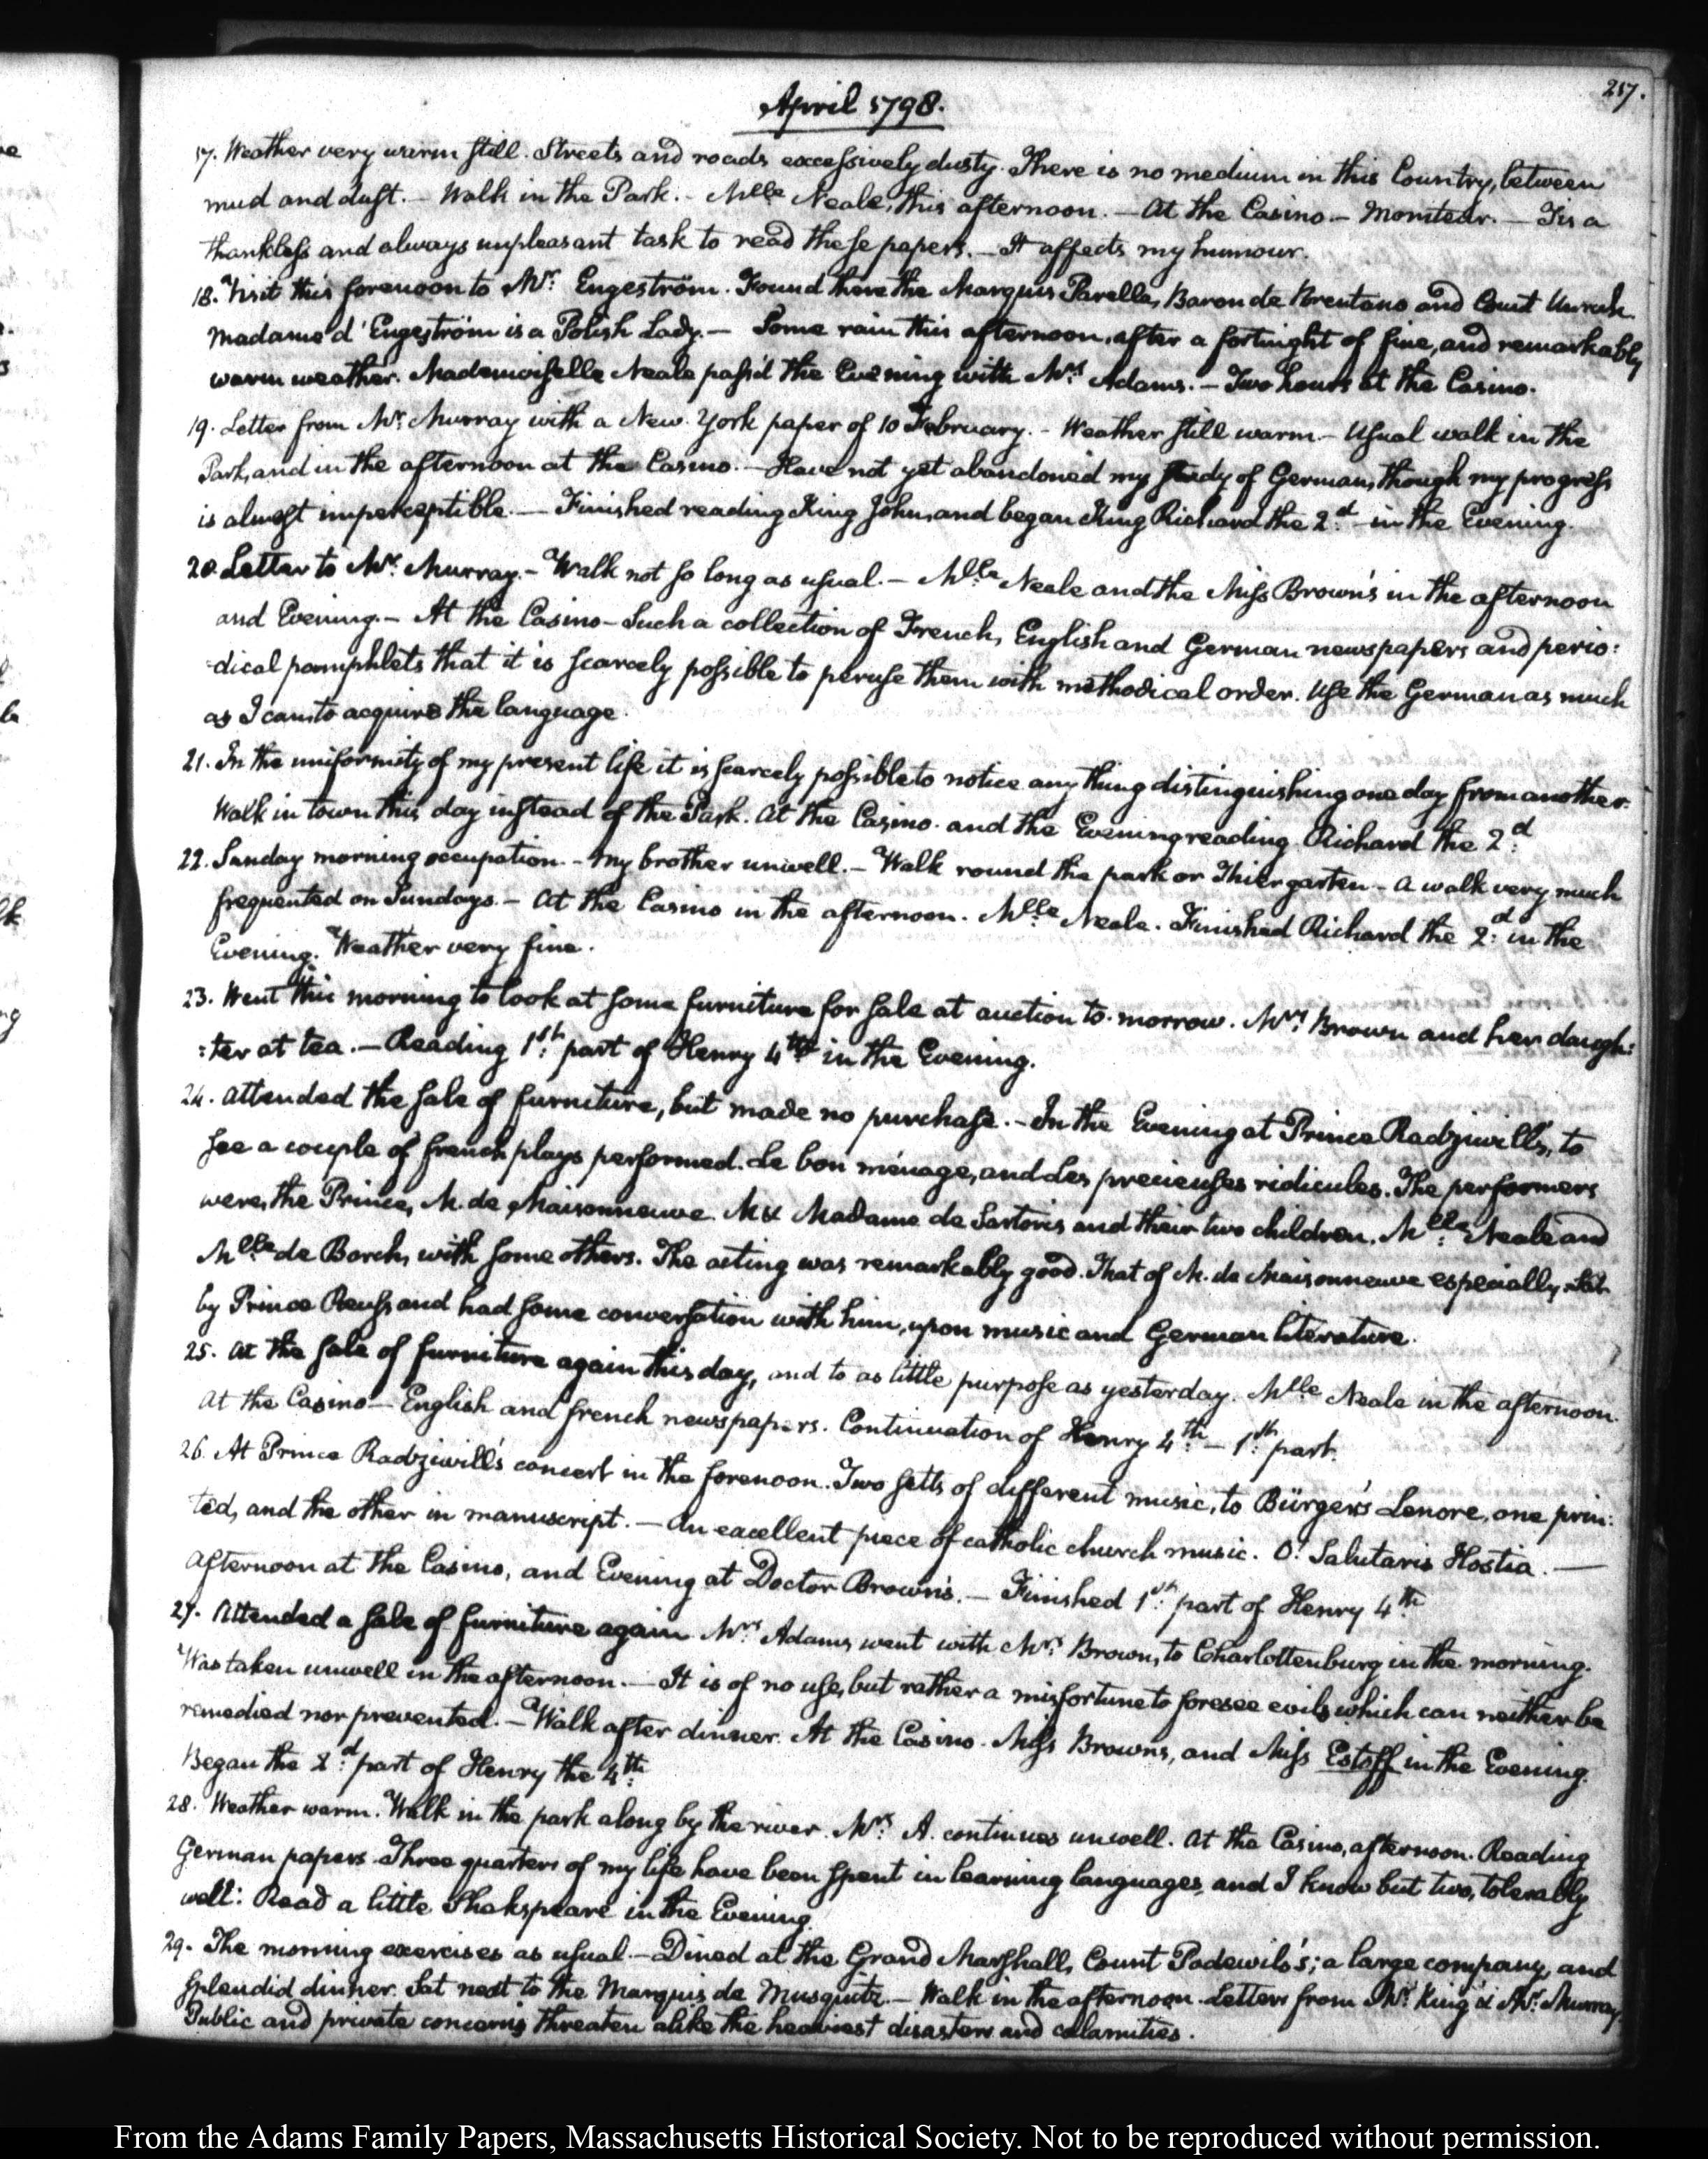 217.
April 1798.
17. Weather very warm still. Streets and roads excessively dusty. There is no medium in this Country, between
mud and dust. — Walk in the Park. — Mlle Neale, this afternoon. — At the Casino — Moniteur. — Tis a
thankless and always unpleasant task to read these papers. — It affects my humour.
18. Visit this forenoon to Mr. Engeström. Found there the Marquis Parella, Baron de Brentano and Count Unruh.
Madame d'Engeström is a Polish Lady. — Some rain this afternoon, after a fortnight of fine, and remarkably
warm weather. Mademoiselle Neale pass'd the Evening with Mrs. Adams. — Two hours at the Casino.
19. Letter from Mr. Murray with a New York paper of 10 February. — Weather still warm — Usual walk in the
Park, and in the afternoon at the Casino. — Have not yet abandoned my study of German, though my progress
is almost imperceptible. — Finished reading King John, and began King Richard the 2d. in the Evening.
20. Letter to Mr. Murray. — Walk not so long as usual. — Mlle Neale and the Miss Brown's in the afternoon
and Evening. — At the Casino — Such a collection of French, English and German newspapers and perio:
:dical pamphlets that it is scarcely possible to peruse them with methodical order. Use the German as much
as I can to acquire the language.
21. In the uniformity of my present life it is scarcely possible to notice any thing distinguishing one day from another.
Walk in town this day instead of the Park. At the Casino. and the Evening reading Richard the 2d.
22. Sunday morning occupation. — My brother unwell. — Walk round the park or Thiergarten — A walk very much
frequented on Sundays. — At the Casino in the afternoon. Mlle Neale. Finished Richard the 2d. in the
Evening. Weather very fine.
23. Went this morning to look at some furniture for sale at auction to-morrow. Mrs. Brown and her daugh:
:ter at tea. — Reading 1st. part of Henry 4th in the Evening.
24. Attended the sale of furniture, but made no purchase. — In the Evening at Prince Radziwill's, to
see a couple of french plays performed. Le bon ménage, and Les precieuses ridicules. The performers
were, the Prince, M. de Maisonneuve. M & Madame de Sartoris and their two children. Mlle Neale and
Mlle de Borch, with some others. The acting was remarkably good. That of M. de Maisonneuve especially. Sat
by Prince Reuss and had some conversation with him, upon music and German literature.
25. At the sale of furniture again this day, and to as little purpose as yesterday. Mlle Neale in the afternoon.
At the Casino — English and french newspapers. Continuation of Henry 4th. — 1st. part.
26. At Prince Radziwill's concert in the forenoon. Two setts of different music, to Bürger's Lenore, one prin:
ted, and the other in manuscript. — An excellent piece of catholic church music. O! Salutaris Hostia. —
Afternoon at the Casino, and Evening at Doctor Brown's. — Finished 1st. part of Henry 4th.
27. Attended a sale of furniture again. Mrs. Adams went with Mrs. Brown, to Charlottenburg in the morning.
Was taken unwell in the afternoon. — It is of no use, but rather a misfortune to foresee evils which can neither be
remedied nor prevented. — Walk after dinner. At the Casino. Miss Browns, and Miss Estoff in the Evening.
Began the 2d. part of Henry the 4th.
28. Weather warm. Walk in the park along by the river. Mrs. A. continues unwell. At the Casino, afternoon. Reading
German papers. Three quarters of my life have been spent in learning languages, and I know but two, tolerably
well: Read a little Shakspeare in the Evening.
29. The morning exercises as usual. — Dined at the Grand Marshall, Count Podewils's; a large company, and
splendid dinner. Sat next to the Marquis de Musquitz. — Walk in the afternoon. Letters from Mr. King & Mr. Murray.
Public and private concerns threaten alike the heaviest disasters and calamities.
From the Adams Family Papers, Massachusetts Historical Society. Not to be reproduced without permission.